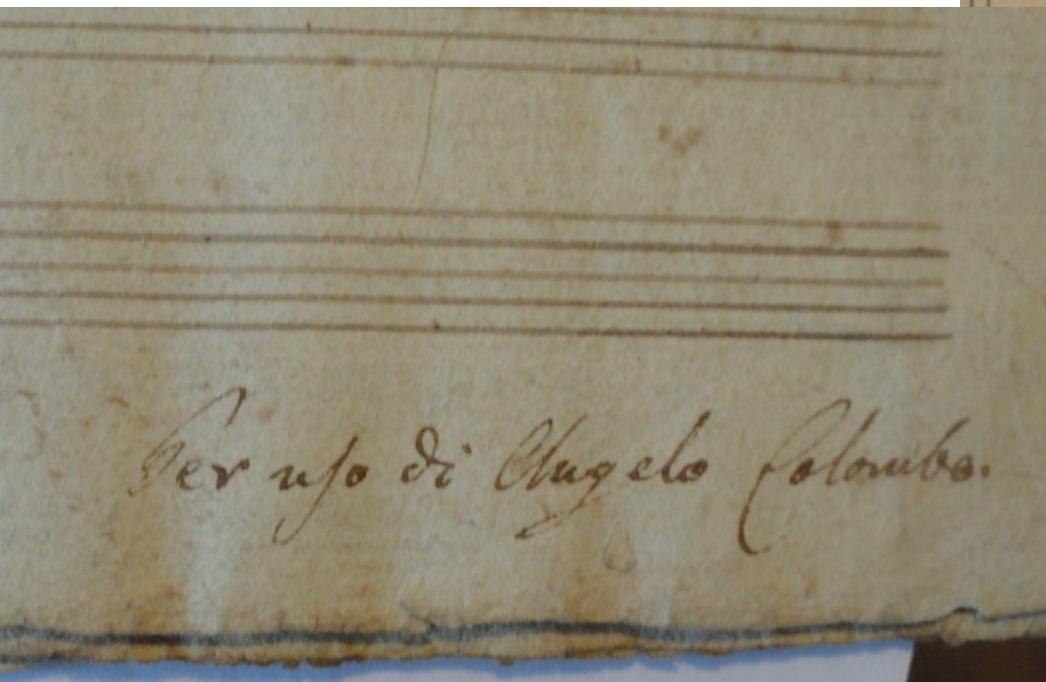 Per uso di Angelo Colombo.